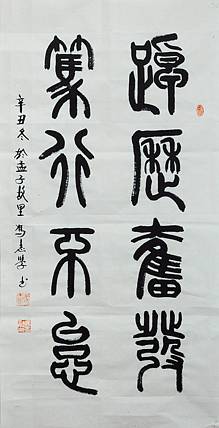 踔厲奮發
篤行不怠
辛丑冬於孟子故里